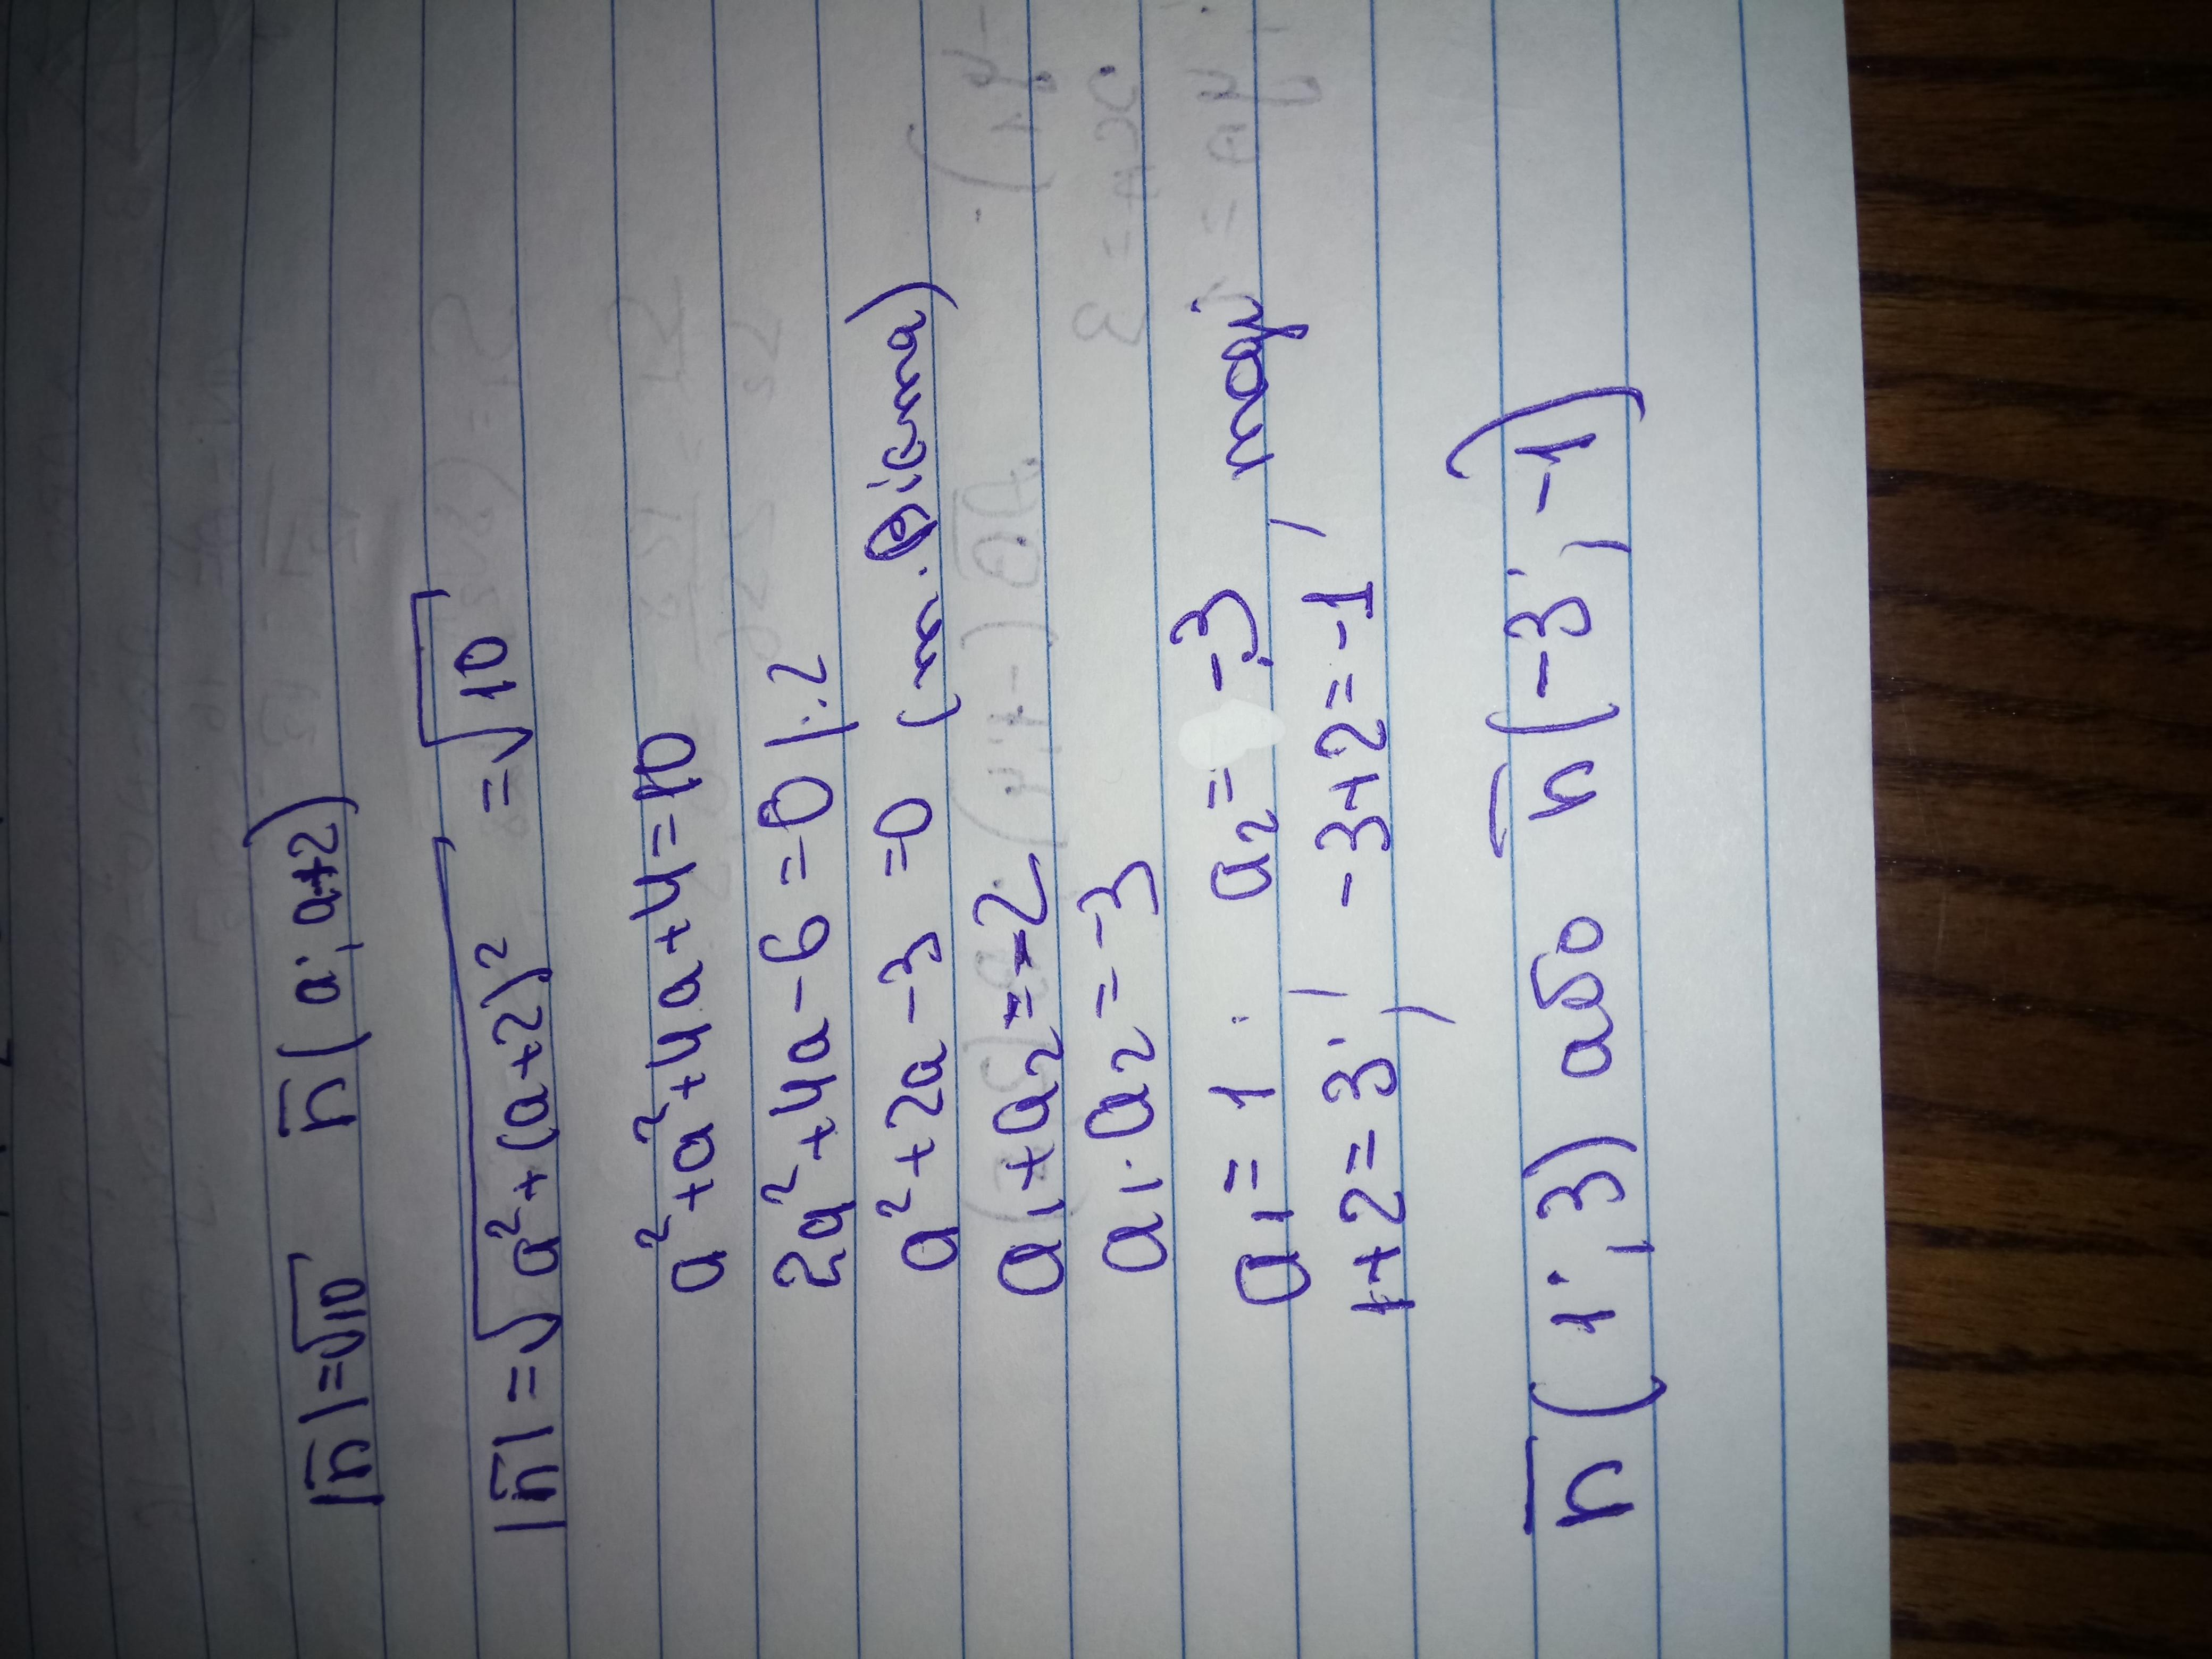 |n̅|=√10 n̅(a; a+2)
|n̅|=√(a²+(a+2)²) =√10
a²+a²+4a+4=10
2a²+4a-6=0 |:2
a²+2a-3=0 (т. Вієта)
a₁+a₂=-2
a₁·a₂=-3
a₁=1; a₂=-3, тоді
1+2=3; -3+2=-1
n̅(1;3) або n̅(-3;-1)